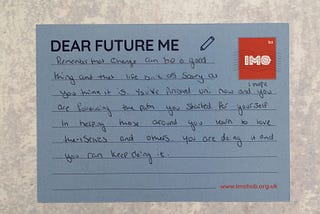 DEAR FUTURE ME
IMO
i hope
Remember that change can be a good
thing and that life isn't as scary as
you think it is. You've finished uni now and you
are following the path you started for yourself
in helping those around you learn to love
themselves and others. You are doing it and
you can keep doing it.
www.imohub.org.uk